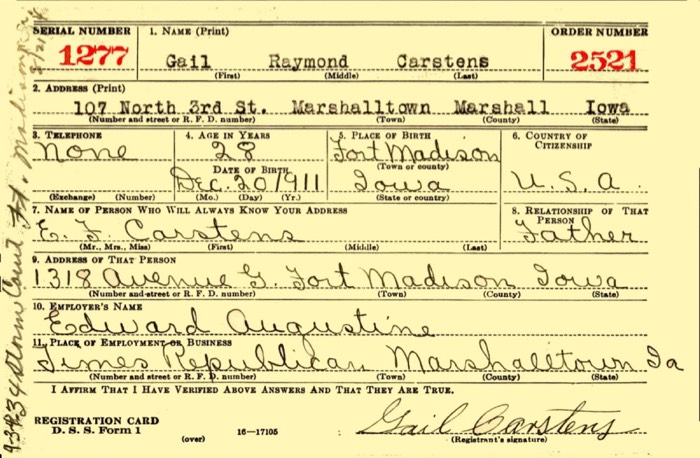 SERIAL NUMBER 1. NAME (Print) ORDER NUMBER
1277 Gail Raymond Carstens 2521
(First) (Middle) (Last)
2. ADDRESS (Print)
107 North 3rd St. Marshalltown Marshall Iowa
(Number and street or R. F. D. number) (Town) (County) (State)
3. TELEPHONE 4. AGE IN YEARS 5. PLACE OF BIRTH 6. COUNTRY OF CITIZENSHIP
None 28 Fort Madison
(Town or county)
DATE OF BIRTH
Dec. 20 1911 Iowa U.S.A.
(Exchange) (Number) (Mo.) (Day) (Yr.) (State or country)
7. NAME OF PERSON WHO WILL ALWAYS KNOW YOUR ADDRESS 8. RELATIONSHIP OF THAT PERSON
E. F. Carstens Father
(Mr., Mrs., Miss) (First) (Middle) (Last)
9. ADDRESS OF THAT PERSON
1318 Avenue G. Fort Madison Iowa
(Number and street or R. F. D. number) (Town) (County) (State)
10. EMPLOYER'S NAME
Edward Augustine
11. PLACE OF EMPLOYMENT OR BUSINESS
Times Republican Marshalltown Ia
(Number and street or R. F. D. number) (Town) (County) (State)
I AFFIRM THAT I HAVE VERIFIED ABOVE ANSWERS AND THAT THEY ARE TRUE.
REGISTRATION CARD
D. S. S. Form 1 (over) 16—17105 Gail Carstens
(Registrant's signature)
Court Ft. Madison